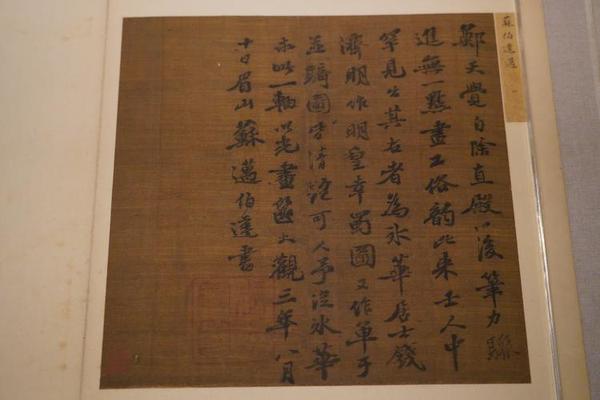 蘇伯達邁
鄭天覺自除直殿以後筆力驟
進無一點畫工俗韻比來士人中
罕見出其右者為冰華居士錢
濟明作明皇幸蜀圖又作單于
並騎圖皆清絕可人予從冰華
求此一軸以光畫篋大觀三年八月
十日眉山蘇邁伯達書